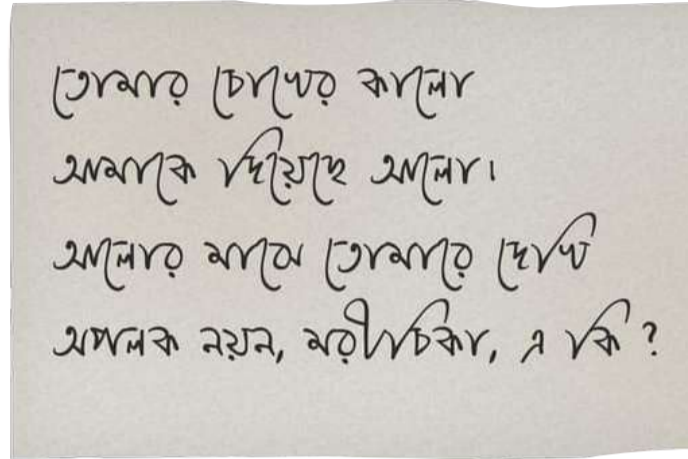 তোমার চোখের কালো
আমাকে দিয়েছে আলো।
আলোর মাঝে তোমারে দেখি
অপলক নয়ন, মরীচিকা, এ কি?